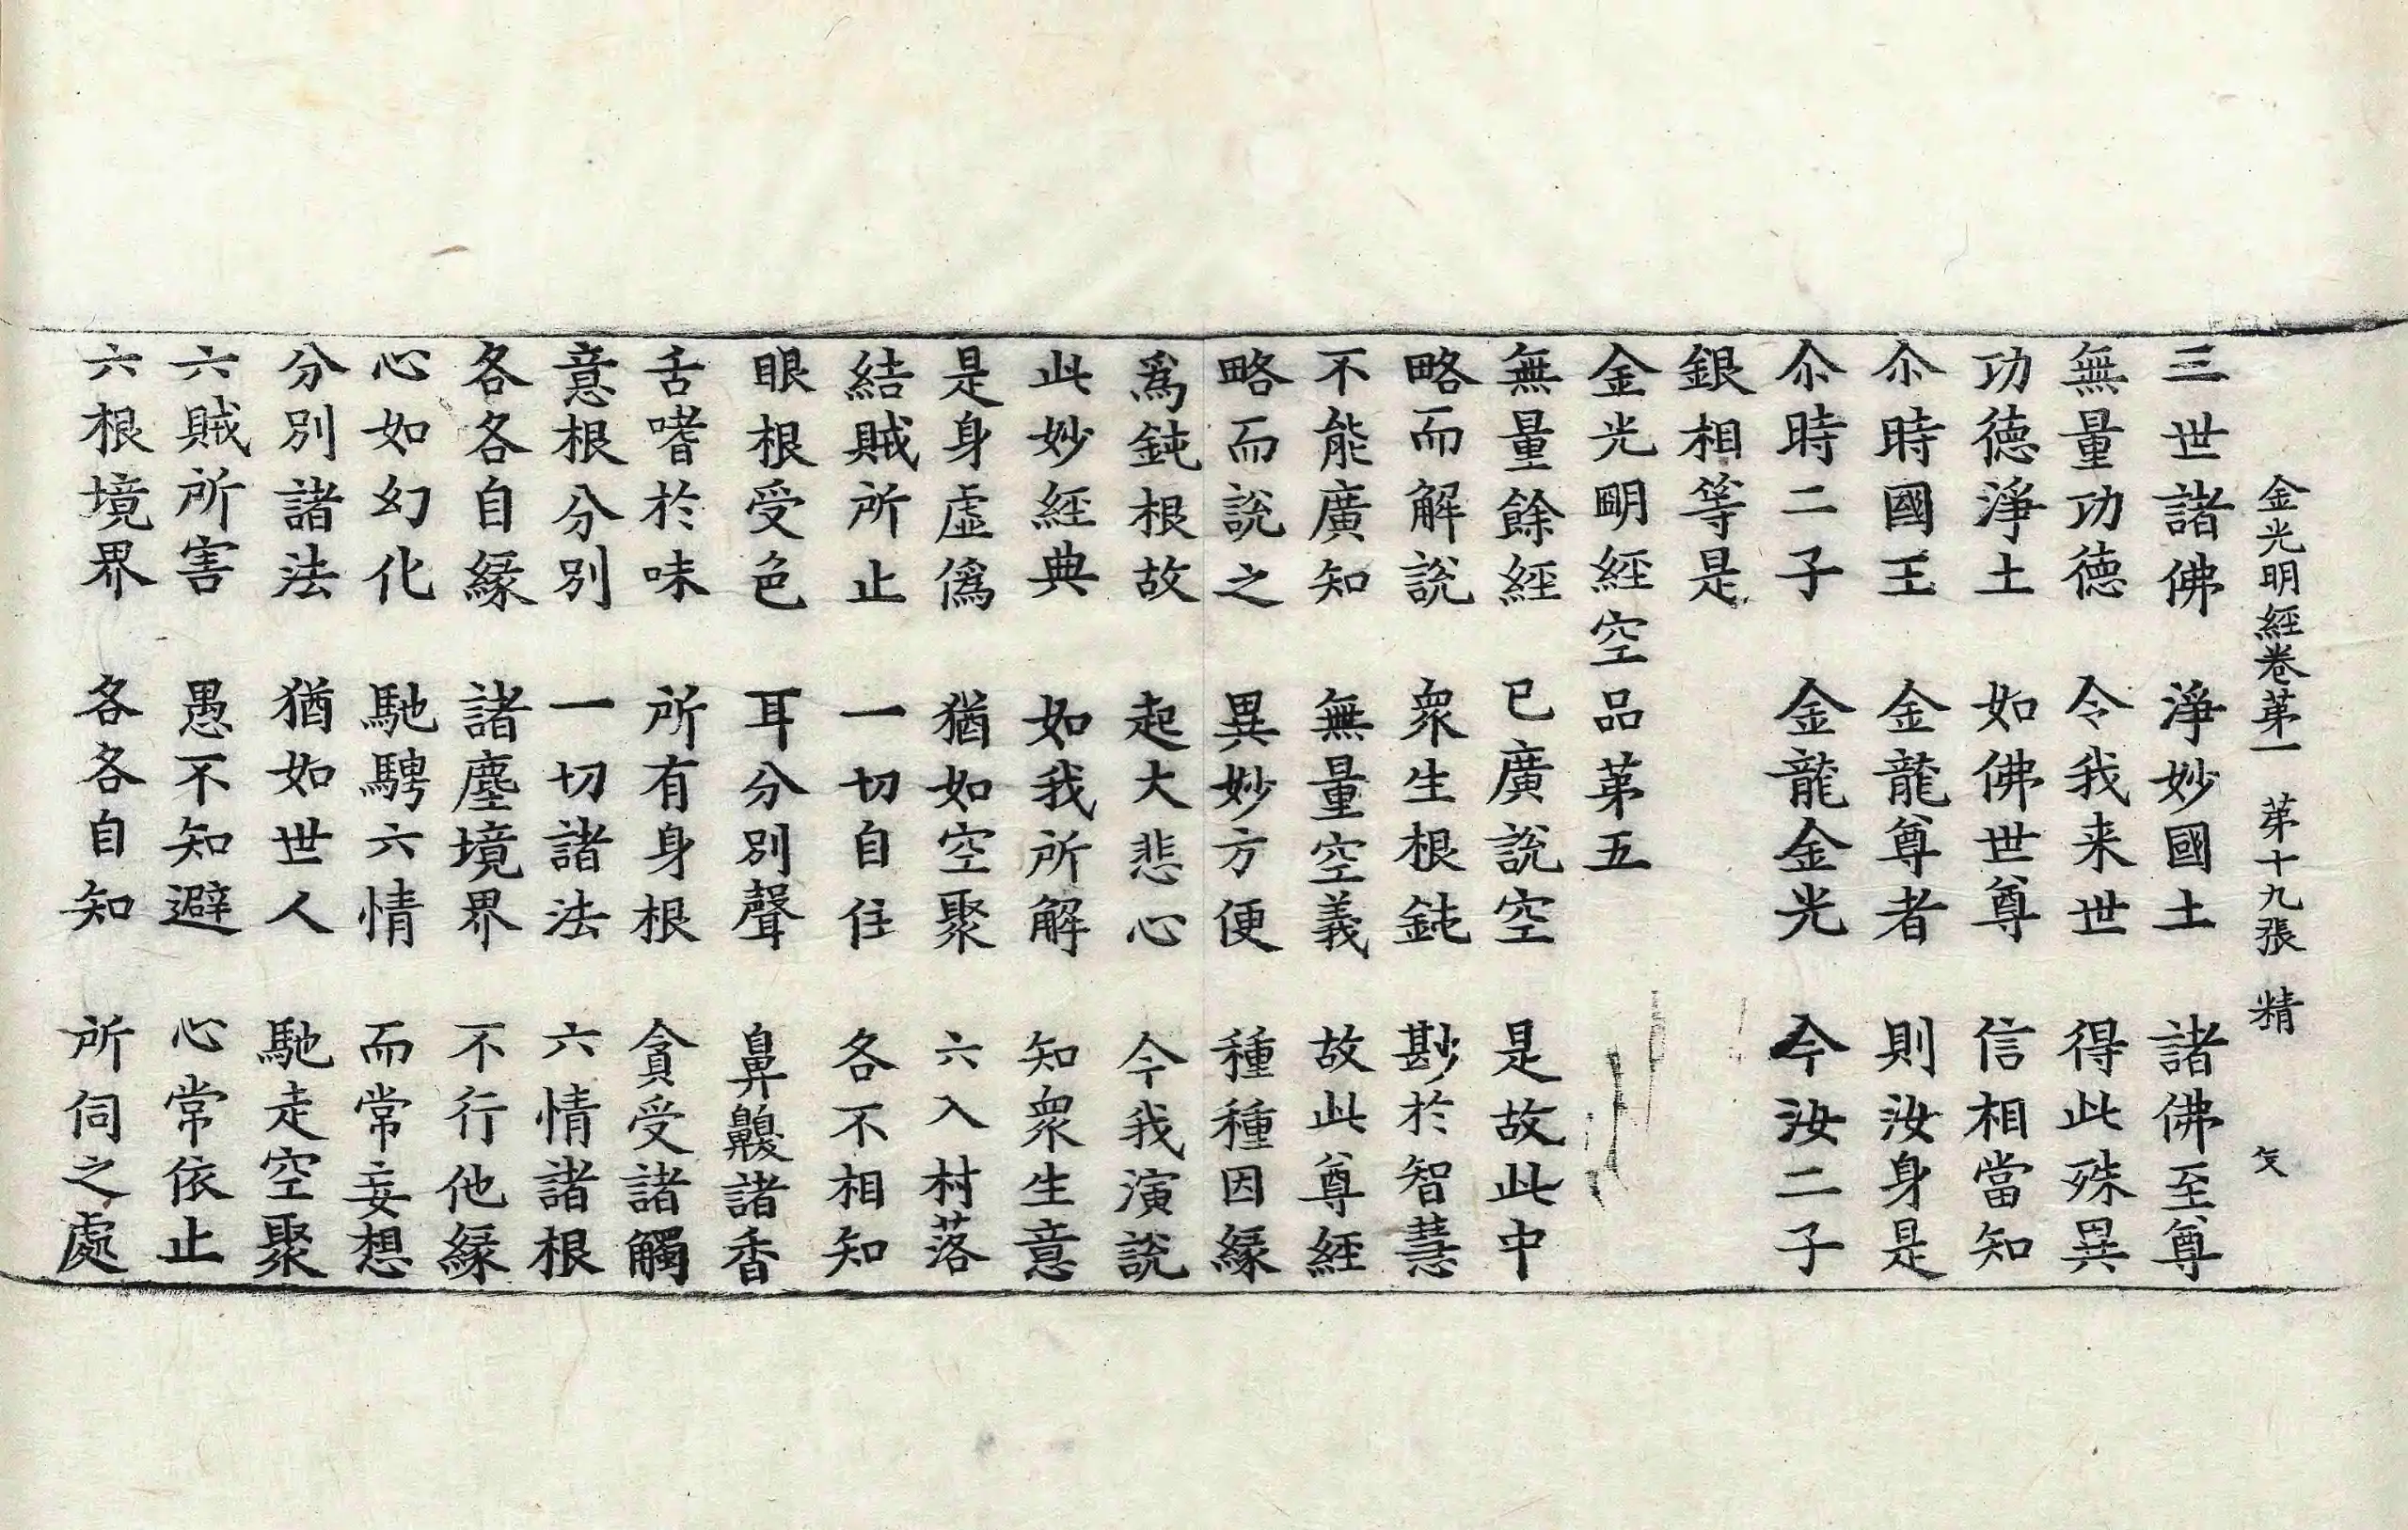 金光明經卷苐一 苐十九張 精
三世諸佛 淨妙國土 諸佛至尊
無量功德 令我来世 得此殊異
功德淨土 如佛世尊 信相當知
尒時國王 金龍尊者 則汝身是
尒時二子 金龍金光 今汝二子
銀相等是
金光明經空品苐五
無量餘經 已廣說空 是故此中
略而解說 衆生根鈍 尠於智慧
不能廣知 無量空義 故此尊經
略而說之 異妙方便 種種因緣
爲鈍根故 起大悲心 今我演說
此妙經典 如我所解 知衆生意
是身虛僞 猶如空聚 六入村落
結賊所止 一切自住 各不相知
眼根受色 耳分別聲 鼻齅諸香
舌嗜於味 所有身根 貪受諸觸
意根分別 一切諸法 六情諸根
各各自緣 諸塵境界 不行他緣
心如幻化 馳騁六情 而常妄想
分別諸法 猶如世人 馳走空聚
六賊所害 愚不知避 心常依止
六根境界 各各自知 所伺之處